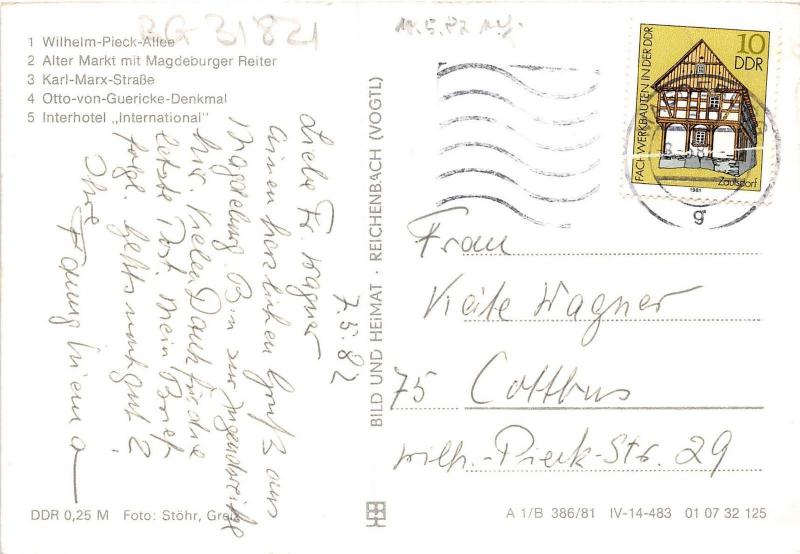 BG 31821
1 Wilhelm-Pieck-Allee
2 Alter Markt mit Magdeburger Reiter
3 Karl-Marx-Straße
4 Otto-von-Guericke-Denkmal
5 Interhotel „International"
7.5.82
Liebe Fr. Wagner
einen herzlichen Gruß aus
Magdeburg. Bin zur Jugendweihe
hier. Vielen Dank für die
letzte Post. Mein Brief
folgt. Geht's noch gut?
Ihre
DDR 0,25 M Foto: Stöhr, Greiz
BILD UND HEIMAT · REICHENBACH (VOGTL)
10
DDR
FACHWERKBAUTEN IN DER DDR
Zaulsdorf
1981
g
Frau
Käte Wagner
75 Cottbus
Wilh.-Pieck-Str. 29
A 1/B 386/81 IV-14-483 01 07 32 125